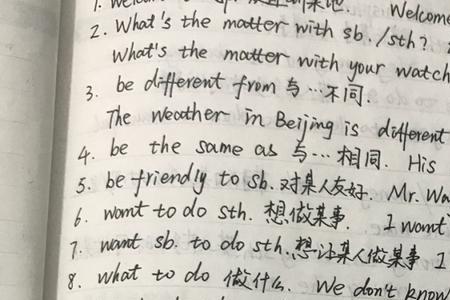 1. Welcome
2. What's the matter with sb./sth?
What's the matter with your watch
3. be different from 与…不同.
The Weather in Beijing is different
4. be the same as 与…相同. His
5. be friendly to sb. 对某人友好. Mr. Wa
6. want to do sth. 想做某事. I want
7. want sb. to do sth. 想让某人做某事 I
8. what to do 做什么. We don't know